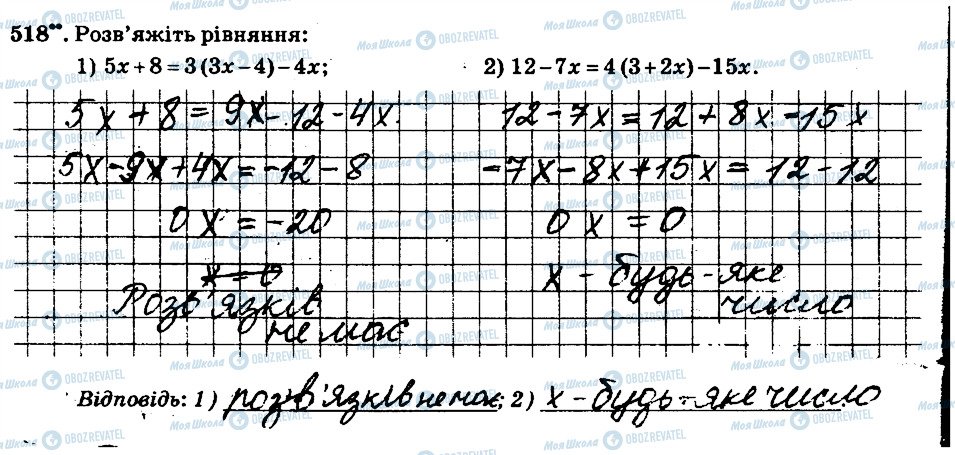 518••. Розв’яжіть рівняння:
1) 5x + 8 = 3 (3x – 4) – 4x; 2) 12 – 7x = 4 (3 + 2x) – 15x.
5x + 8 = 9x - 12 - 4x. 12 - 7x = 12 + 8x - 15x
5x - 9x + 4x = -12 - 8 -7x - 8x + 15x = 12 - 12
0x = -20 0x = 0
x = 0 x - будь-яке
Розв'язків число
немає
Відповідь: 1) розв'язків немає; 2) x - будь-яке число